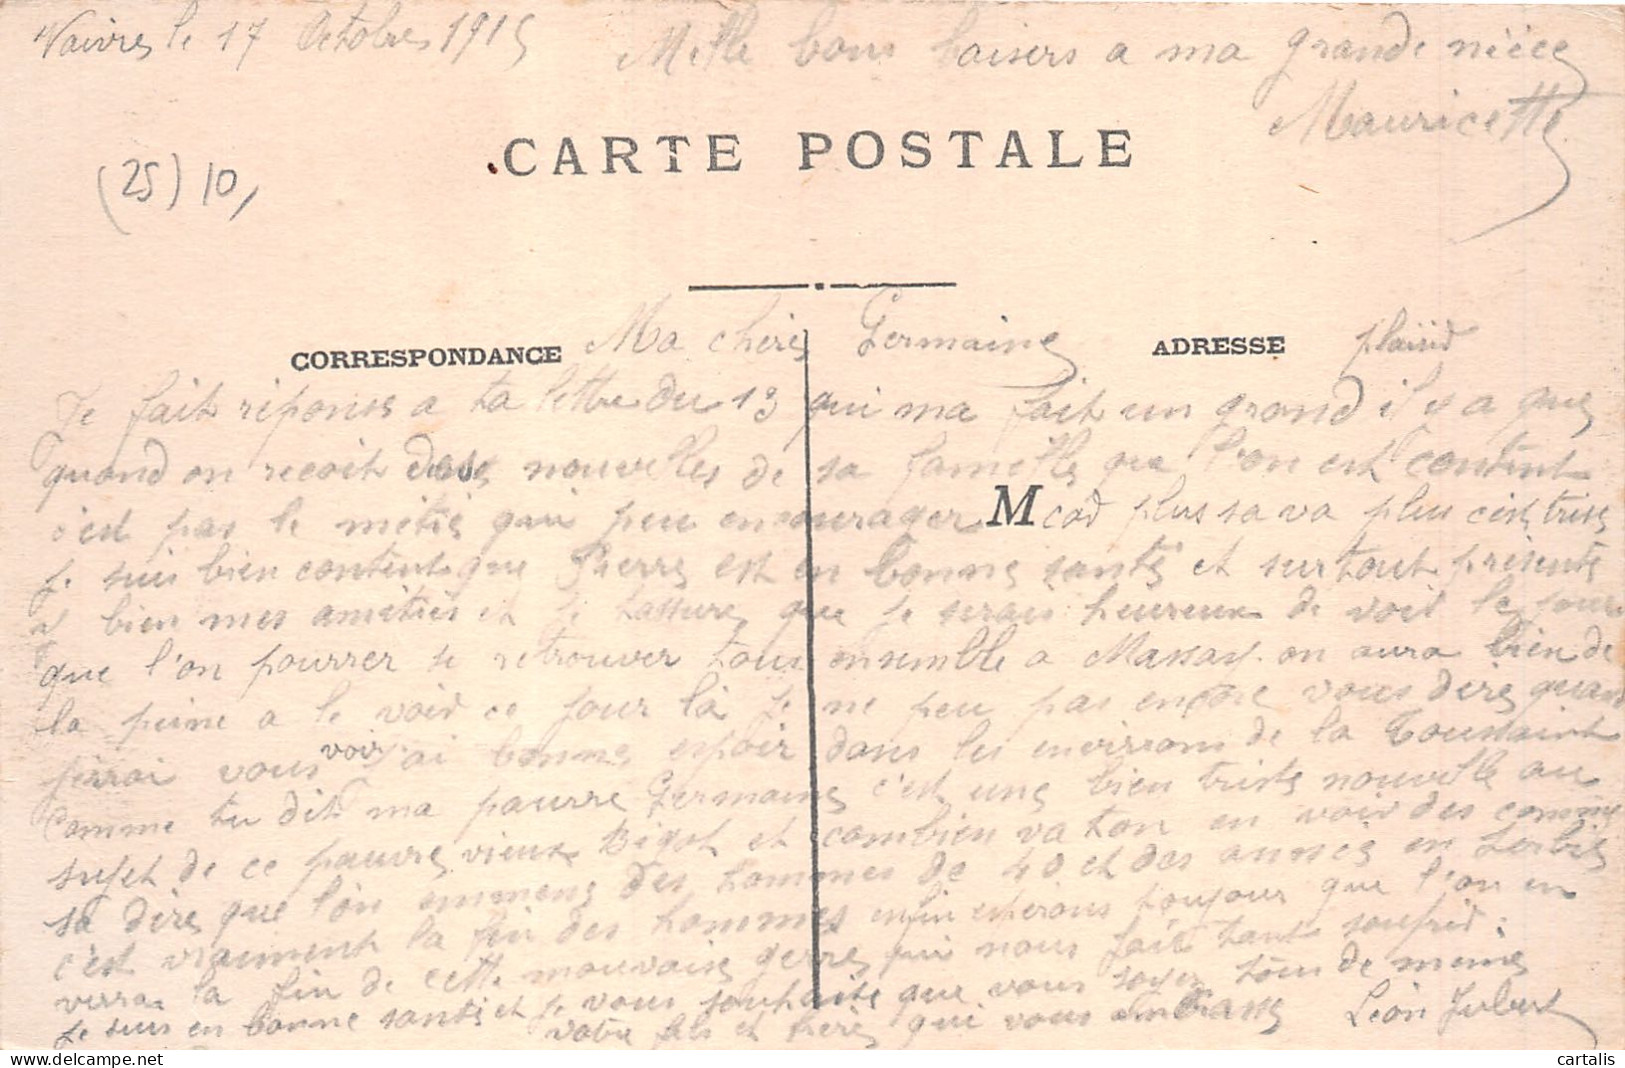 Vaivre le 17 Octobre 1915
Mille bons baisers a ma grande niece
Mauricette
CARTE POSTALE
(25) 10,
CORRESPONDANCE
ADRESSE
Ma chere Germaine
plaisir
Je fait reponse a ta lettre du 13 qui ma fait un grand il y a que
quand on recoit des nouvelles de sa famille que l'on est content
c'est pas le metie qui peu encourager M car plus sa va plus c'est triste
je suis bien content que Pierre est en bonne santé et surtout présente
y bien mes amities et je tassure que je serais heureux de voir le jour
que l'on pourrer se retrouver tous ensemble a Massay. on aura bien de
la peine a le voir ce jour là je ne peu pas encore vous dire quand
jirrai vous voir j'ai bonne espoir dans les environs de la Toussaint
comme tu dit ma pauvre Germaine c'est une bien triste nouvelle au
sujet de ce pauvre vieux Bigot et combien va ton en voir des comme
sa dire que l'on emmene des hommes de 40 et des ansse en Serbie
c'est vraiment la fin des hommes enfin esperons toujour que l'on en
verra la fin de cette mauvaise gerre qui nous fait tant soufrir.
je suis en bonne sante et je vous souhaite que vous soyez tous de meme
votre fils et frère qui vous embrasse Léon Jubert
cartalis